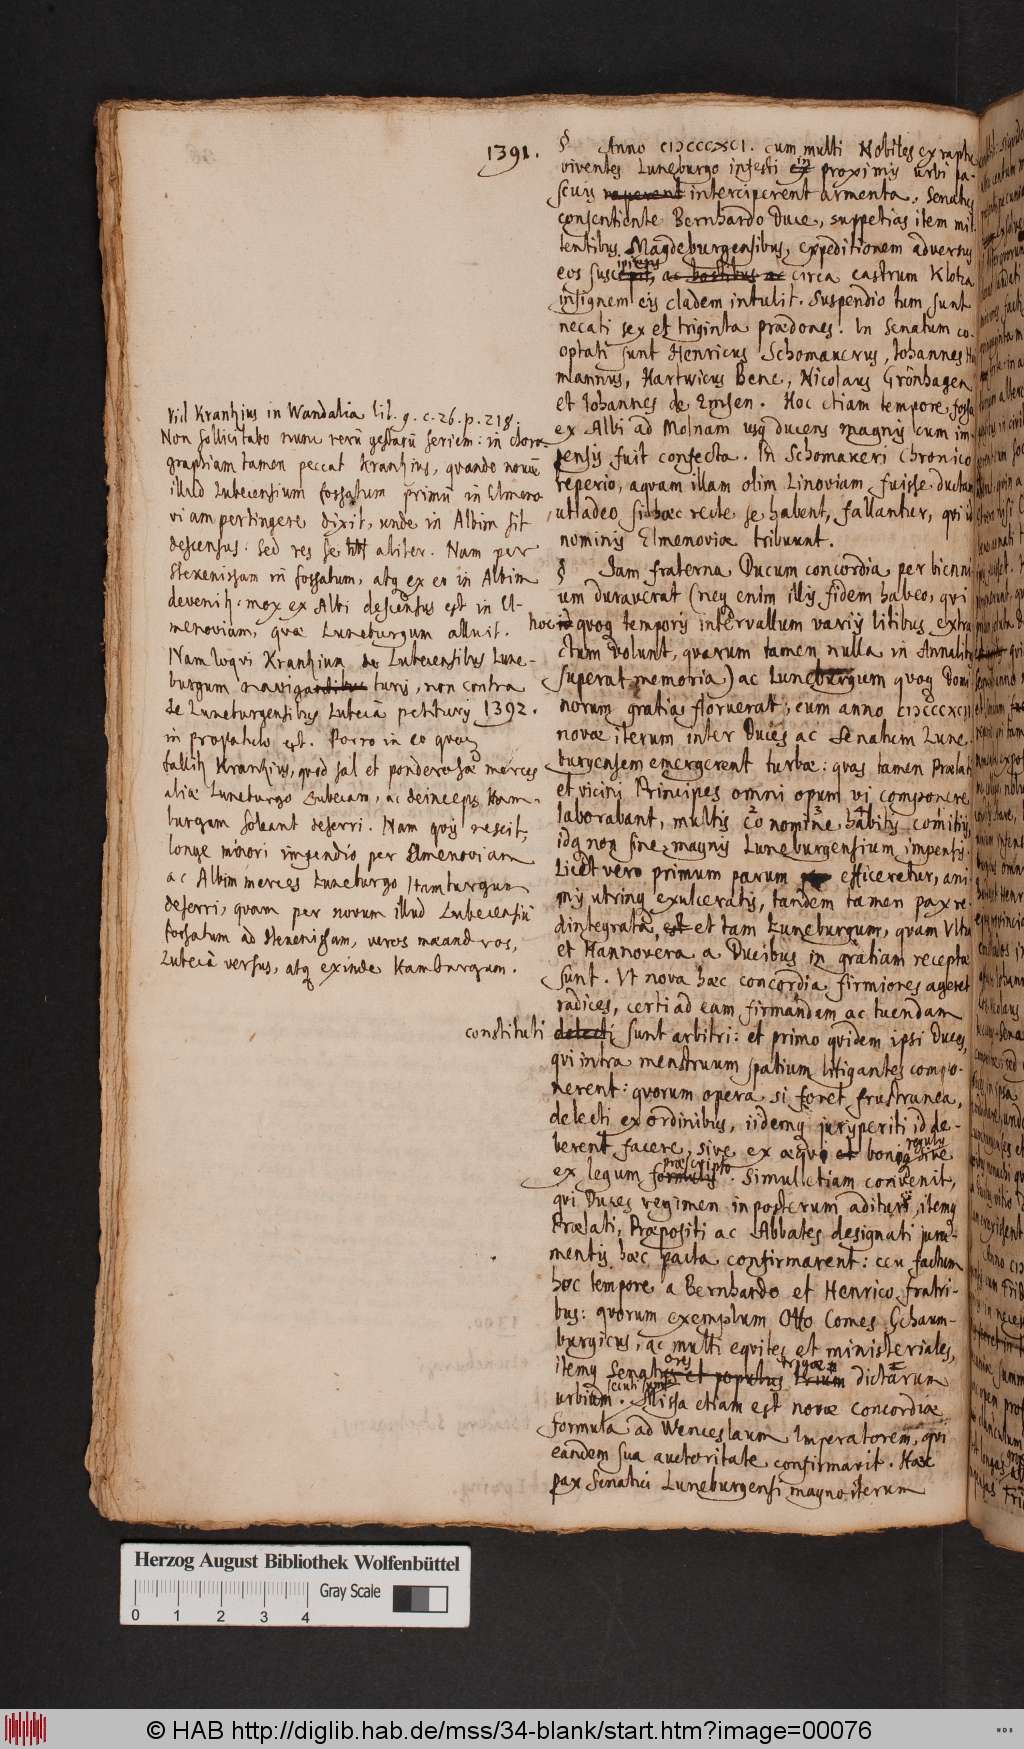 1391.
§ Anno CIƆCCCXCI. cum multi Nobiles ex raptu
viventes Luneburgo infesti ex in proximis urbi pa-
scuis raperent interciperent armenta, Senatus
consentiente Bernhardo Duce, suppetias item mit
tentibus Magdeburgensibus, expeditionem adversus
eos suscipiens, ac hostibus ac circa castrum Klotza
insignem eis cladem intulit. Suspendio tum sunt
necati sex et triginta prædones. In Senatum co-
optati sunt Henricus Schomakerus, Johannes
mannus, Hartwicus Bene, Nicolaus Grönhagen
et Johannes de Emsen. Hoc etiam tempore fossa
ex Albi ad Molnam usq ducens magnis cum im-
pensis fuit confecta. In Schomakeri Chronico
reperio, aquam illam olim Linoviam fuisse dictam
ut adeo si hæc recte se habent, fallantur, qui ei
nominis Elmenoviæ tribuunt.
§ Jam fraterna Ducum concordia per bienni
um duraverat (neq enim illis fidem habeo, qui
hoc id quoq temporis intervallum variis litibus extra
ctum volunt, quarum tamen nulla in Annalibus
superat memoria) ac Luneburgum quoq Domi
norum gratia floruerat; cum anno CIƆCCCXCII
1392.
novæ iterum inter Duces ac Senatum Lune
burgensem emergerent turbæ: quas tamen Prælati
et vicini Principes omni opum vi componere
laborabant, multis eo nomine habitis comitiis,
idq non sine magnis Luneburgensium impensis.
Licet vero primum parum efficeretur, ani
mis utrinq exulceratis, tandem tamen pax re
dintegrata, est et tam Luneburgum, quam Ultz
et Hannovera a Ducibus in gratiam receptæ
sunt. Ut nova hæc concordia firmiores ageret
radices, certi ad eam firmandam ac tuendam
constituti delecti sunt arbitri: et primo quidem ipsi Duces,
qui intra menstruum spatium litigantes compo-
nerent: quorum opera si foret frustranea,
delecti ex ordinibus, iidemq jurisperiti id de-
berent facere, sive ex æquo et boni regulis sive
ex legum formulis præscripto. Simul etiam convenit,
qui Duces regimen in posterum adituri, itemq
Prælati, Præpositi ac Abbates designati jura-
mentis hæc pacta confirmarent: ceu factum
hoc tempore a Bernhardo et Henrico fratri-
bus: quorum exemplum Otto Comes Schaum-
burgicus, ac multi equites et ministeriales,
itemq Senatus ores et populus trium trigæ dictarum
urbium secuti sunt. Missa etiam est novæ concordiæ
formula ad Wenceslaum Imperatorem, qui
eandem sua auctoritate confirmavit. Hæc
pax Senatui Luneburgensi magno iterum
Vid Krantzius in Wandalia lib. 9. c. 26. p. 218.
Non sollicitabo nunc rerū gestarū seriem: in choro
graphiam tamen peccat Krantzius, quando novū
illud Lubecensium fossatum primū in Elmeno
viam pertingere dixit, unde in Albim sit
descensus. Sed res se aliter. Nam per
Stekenissam in fossatum, atq ex eo in Albim
devenitur: mox ex Albi descensus est in El-
menoviam, quæ Luneburgum alluit.
Nam loqui Krantzium de Lubecensibus Lune-
burgum navigantibus turis, non contra
de Luneburgensibus Lubecā petituris
in propatulo est. Porro in eo quoq
fallitur Krantzius, quod sal et ponderosæ merces
aliæ Luneburgo Lubecam, ac deinceps Ham-
burgum soleant deferri. Nam quis nescit,
longe minori impendio per Elmenoviam
ac Albim merces Luneburgo Hamburgum
deferri, quam per novum illud Lubecensiū
fossatum ad Stekenissam, veros mæandros,
Lubecā versus, atq exinde Hamburgum.
Herzog August Bibliothek Wolfenbüttel
Gray Scale
0 1 2 3 4
© HAB http://diglib.hab.de/mss/34-blank/start.htm?image=00076